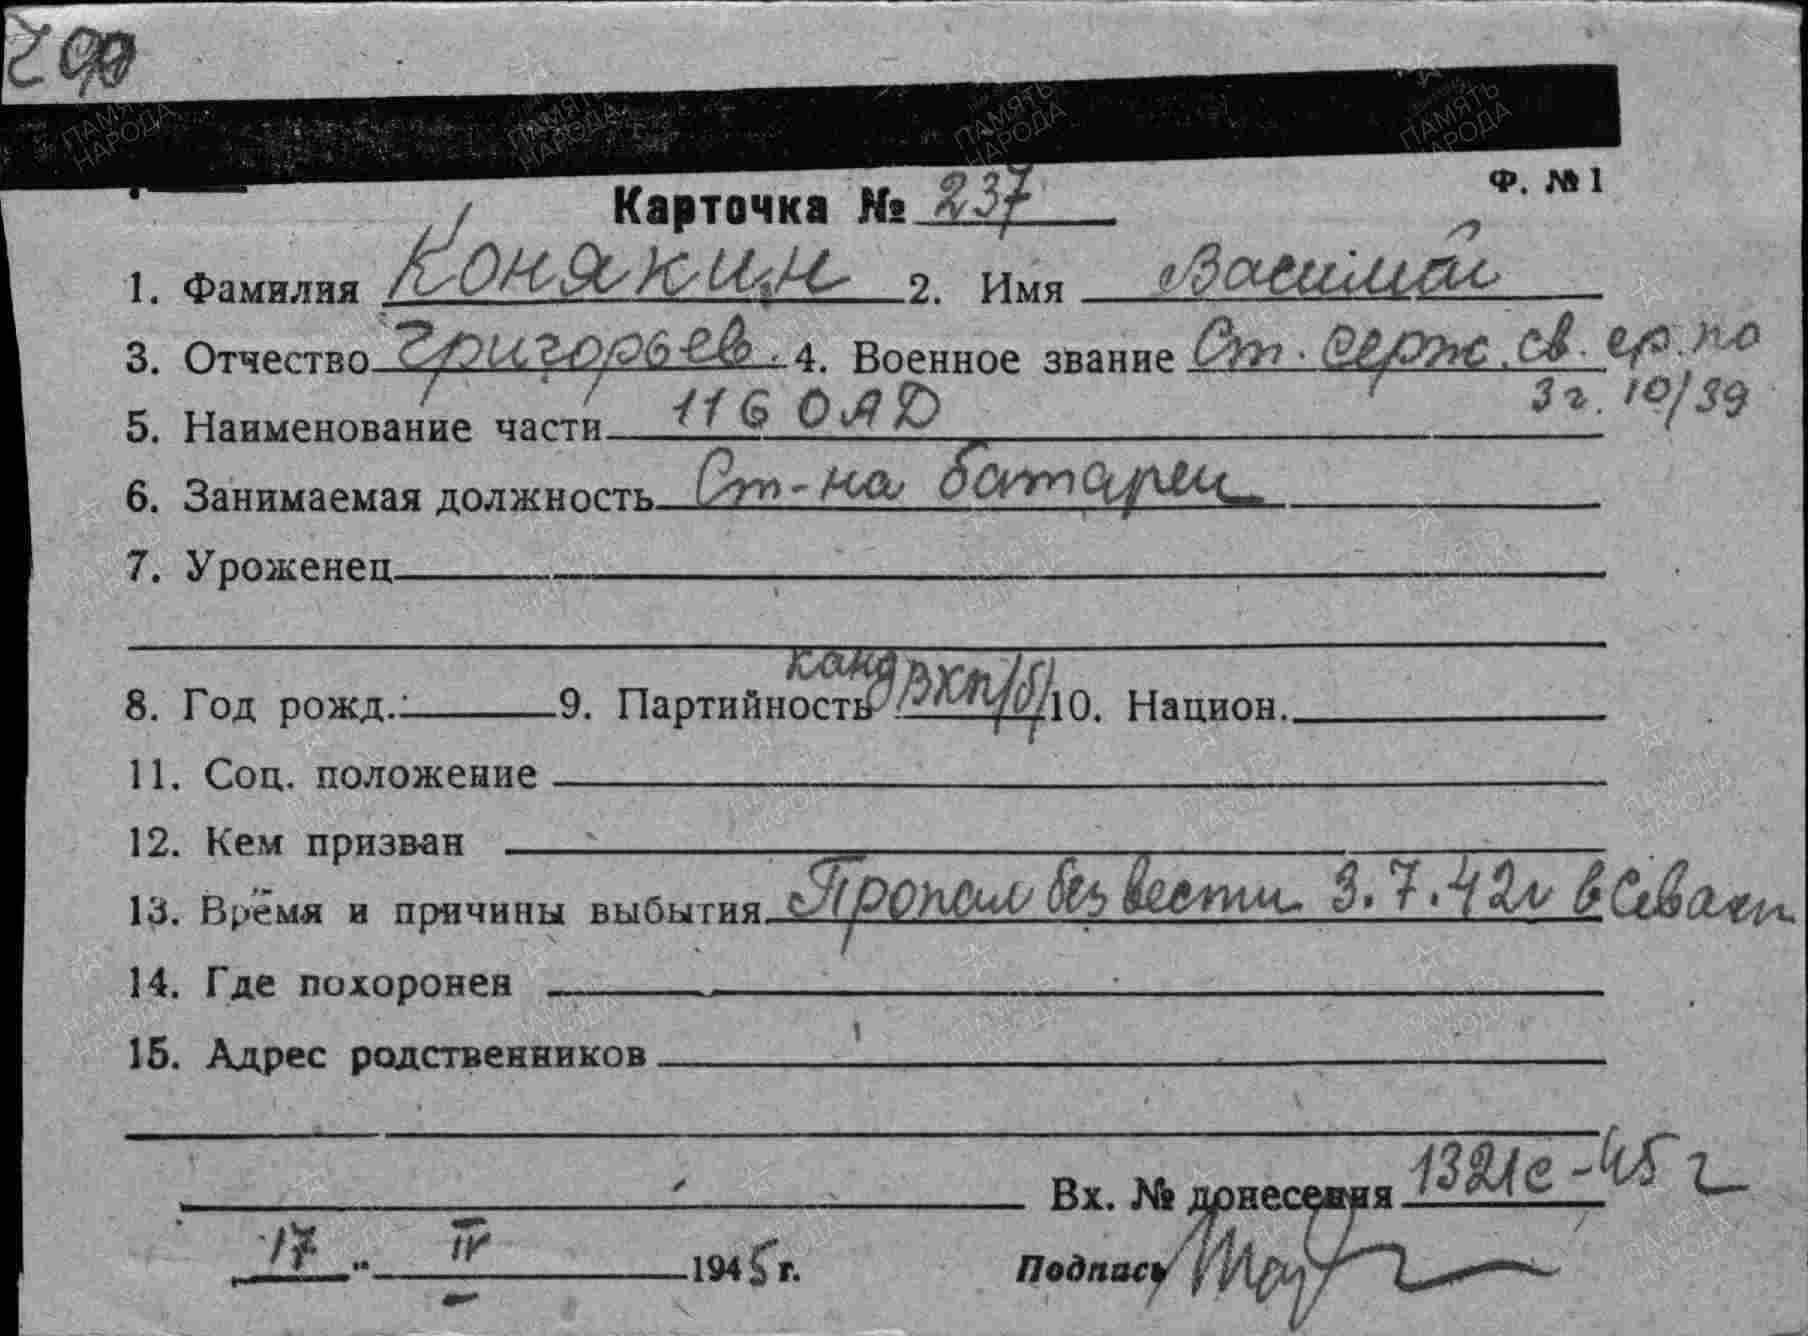 Ф. № 1
Карточка № 237
1. Фамилия Конякин 2. Имя Василий
3. Отчество Григорьев. 4. Военное звание Ст. серж. св. ср. по
3 г. 10/39
5. Наименование части 116 ОАД
6. Занимаемая должность Ст-на батареи
7. Уроженец
8. Год рожд. 9. Партийность канд ВКП/б/ 10. Национ.
11. Соц. положение
12. Кем призван
13. Время и причины выбытия Пропал без вести 3.7.42г в Севаст
14. Где похоронен
15. Адрес родственников
Вх. № донесения 1321с-45 г
17 " IV 1945 г. Подпись
ПАМЯТЬ НАРОДА